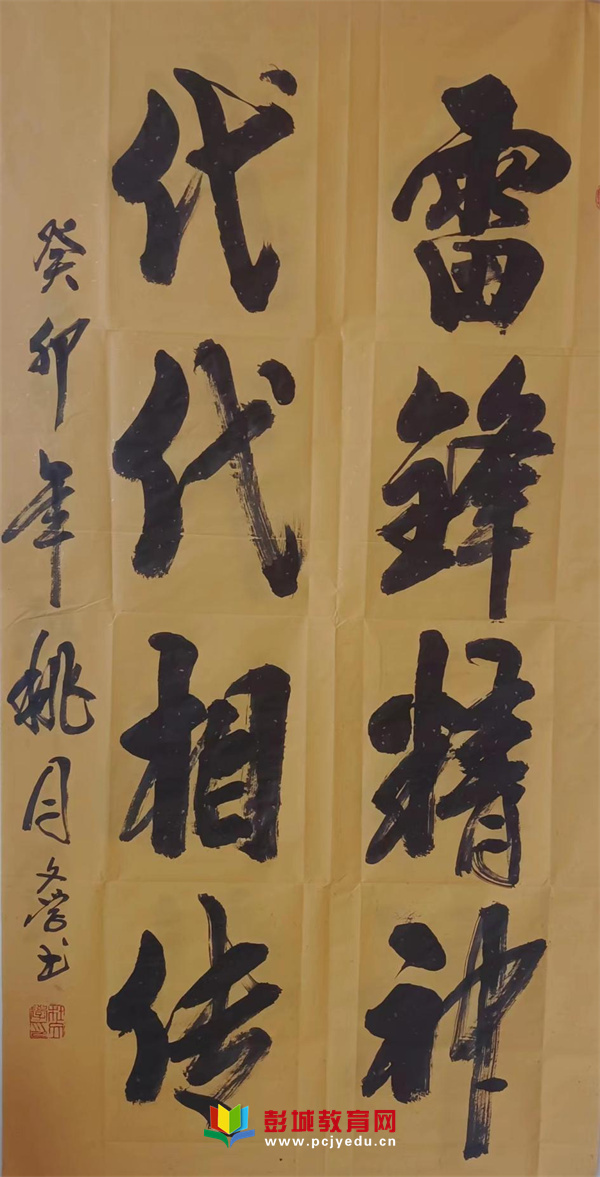 雷锋精神
代代相传
癸卯年桃月文学书
彭城教育网
www.pcjyedu.cn